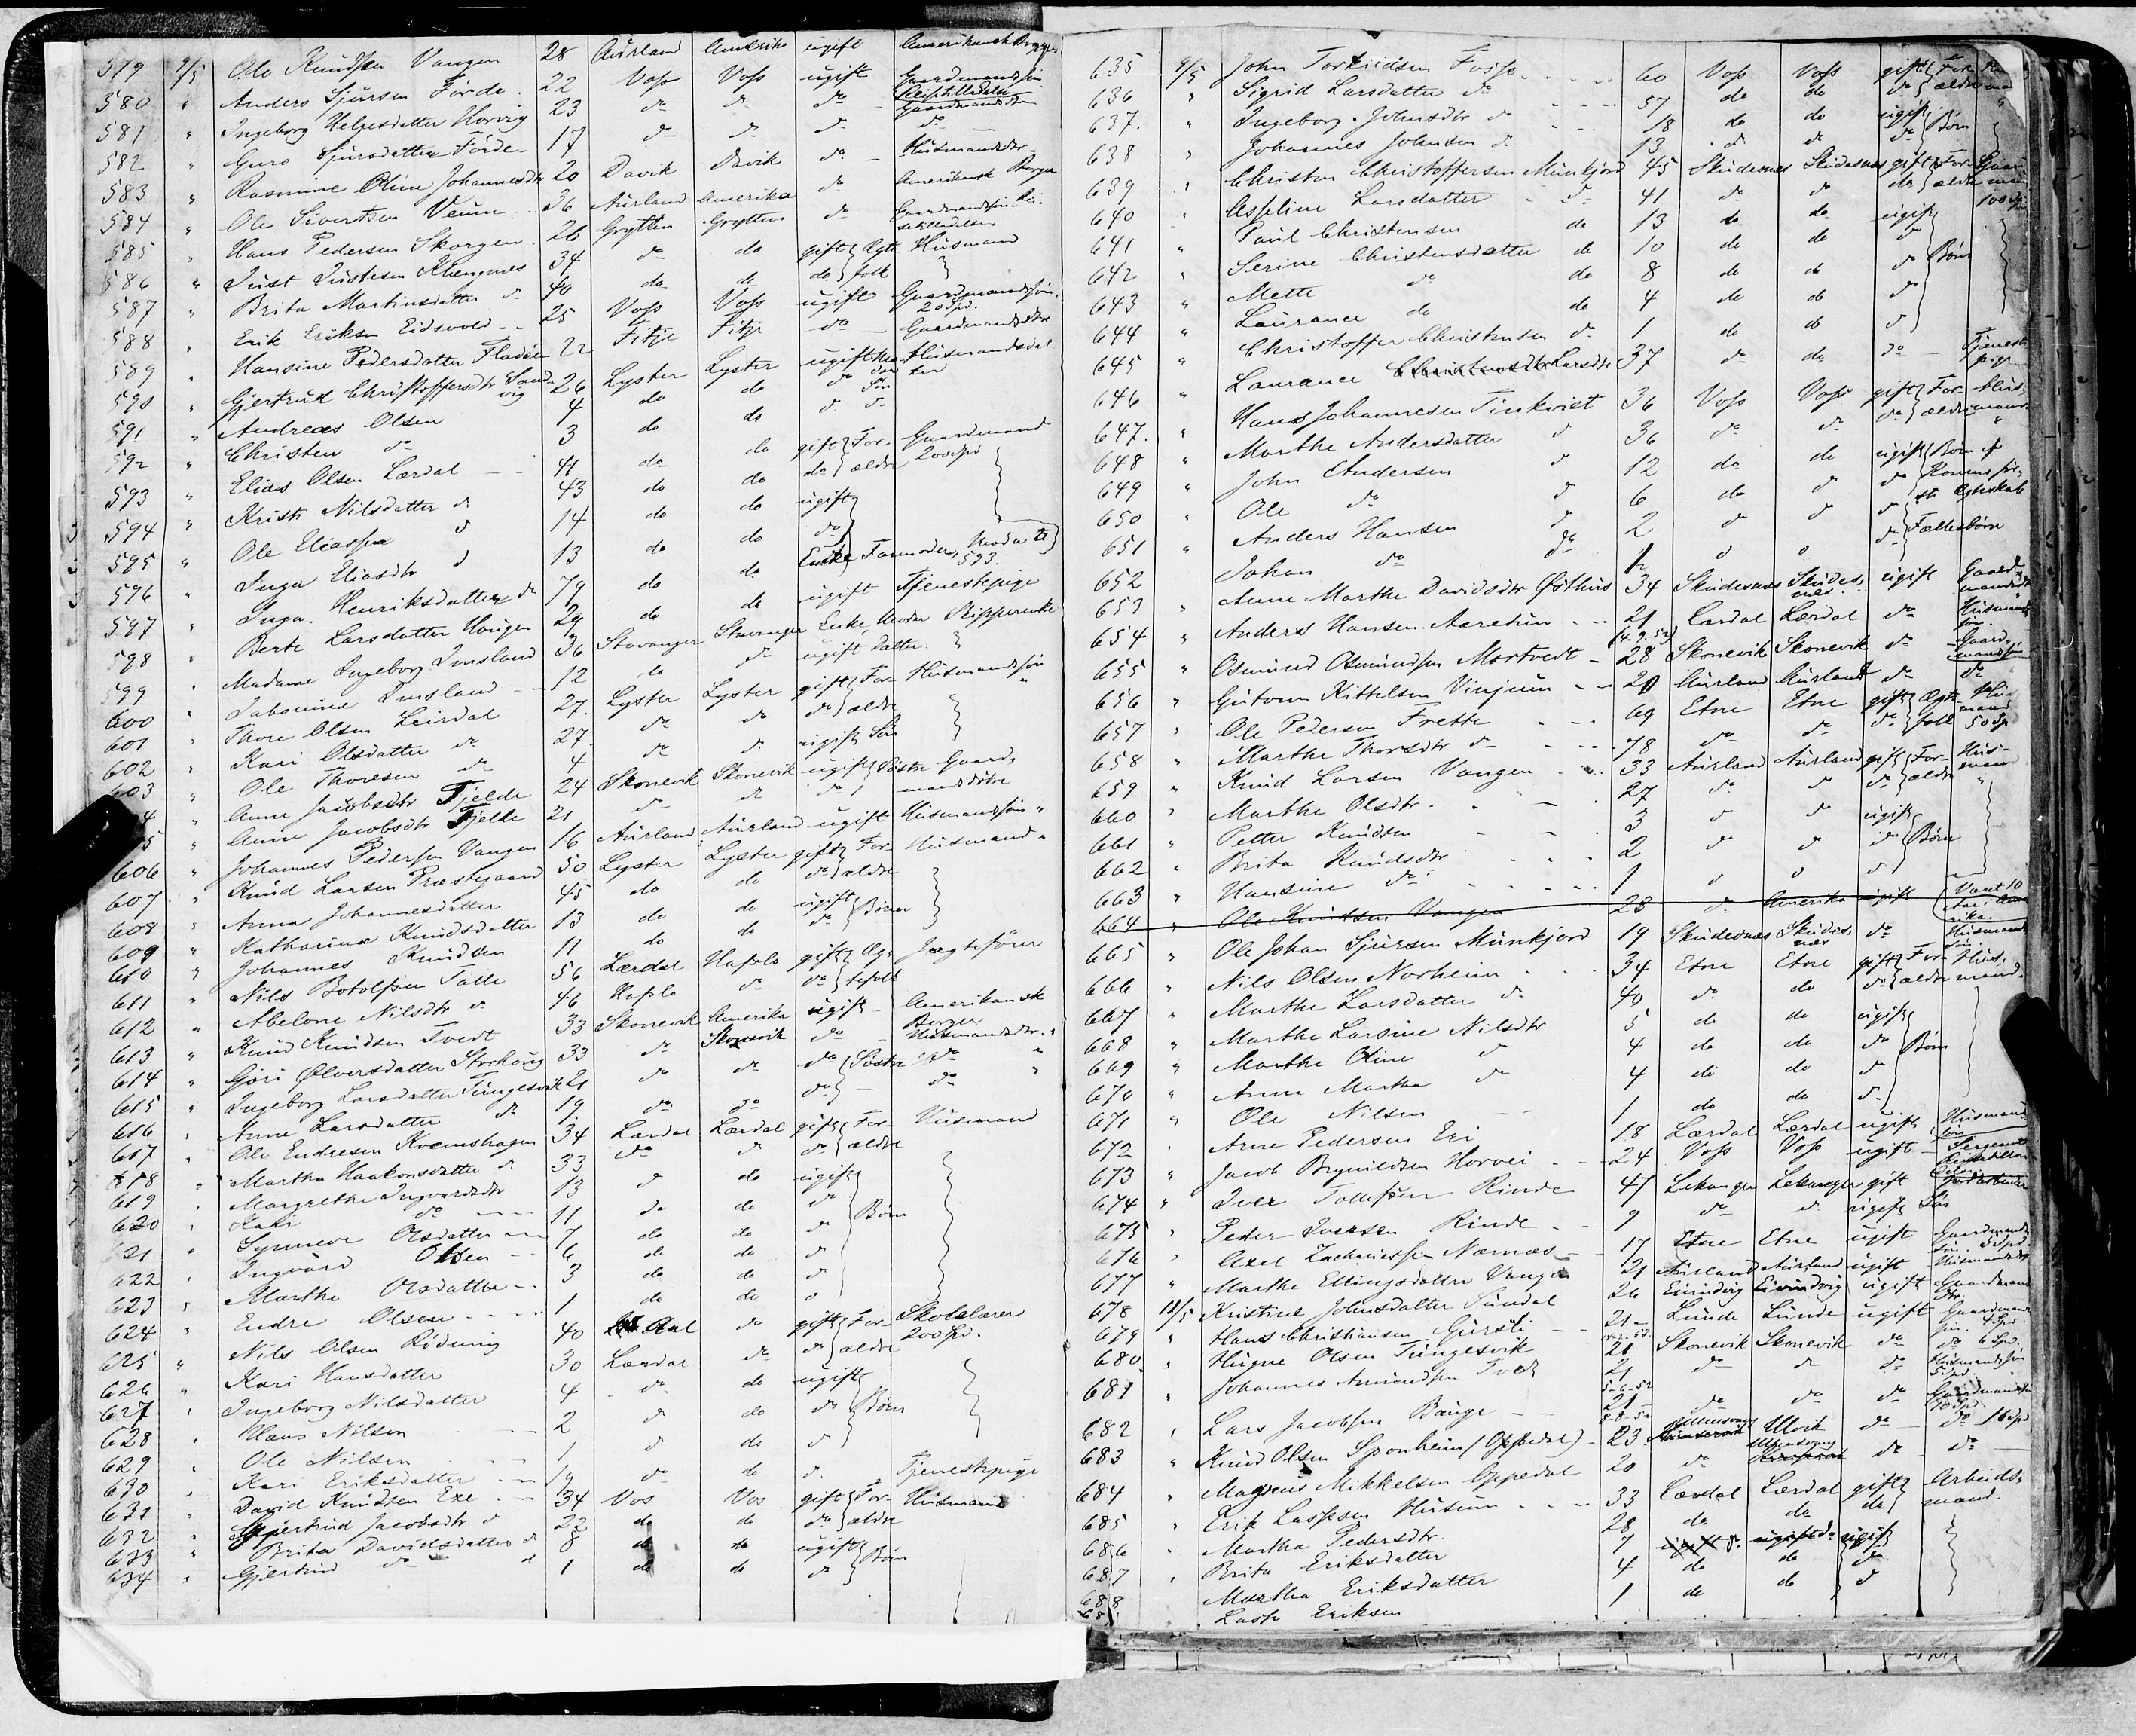 579 9/5 Ole Knudsen Vangen 28 Aurland Amerika ugift Amerikansk Borger
580 " Anders Sjursen Förde 22 Voss Voss ugift Gaardmandssøn
581 " Ingeborg Helgesdatter Horvig 23 do do do Gaardmandsdtr
582 " Guro Sjursdatter Förde 17 do do do do
583 " Rasmine Oline Johannesdtr 20 Davik Davik do Husmandsdtr
584 " Ole Sivertsen Venum 36 Aurland Amerika do Amerikansk Borger
585 " Hans Pedersen Skorgen 26 Grytten Grytten do Gaardmandssøn
586 " Just Justesen 34 do do gift Ægte Husmand
587 " Brita Martinsdatter do 40 do do do folk
588 " Erik Eriksen Eidsvold 25 Voss Voss ugift Gaardmandssøn 20 Spd.
589 " Hansine Pedersdatter Fladöen 22 Fitje Fitje do Gaardmandsdtr
590 " Gjertrud Christoffersdtr Sandvig 26 Lyster Lyster ugift Husmandsdatter
591 " Andreas Olsen 4 do do do Søn
592 " Christen do 3 do do do do
593 " Elias Olsen Lærdal 41 do do gift For- Gaardmand
594 " Kristi Nilsdatter do 43 do do do ældre 200 Spd
595 " Ole Eliassen do 14 do do ugift
Inga Eliasdtr do 13 do do do
596 " Inga Henriksdatter do 79 do do Enke Farmoder, Moder til 593.
597 " Berte Larsdatter Haugen 29 do do ugift Tjenestepige
598 " Madame Ingeborg Imsland 36 Stavanger Stavanger Enke, Moder Skipperenke
599 " Jabomine Imsland 12 do do ugift Datter
600 " Thore Olsen Leirdal 27 Lyster Lyster gift For- Husmandssøn
601 " Kari Olsdatter do 27 do do do ældre
602 " Ole Thoresen do 4 do do ugift Søn
603 " Anne Jacobsdtr Fjelde 24 Skonevik Skonevik ugift Søstre Gaard-
4 " Anne Jacobsdtr Fjelde 21 do do do mandsdøtre
5 " Johannes Pedersen Vangen 16 Aurland Aurland ugift Husmandssøn
606 " Knud Larsen Præstegaard 50 Lyster Lyster gift For- Husmand
607 " Anna Johannesdatter 45 do do do ældre
608 " Katharina Knudsdatter 13 do do ugift Børn
609 " Johannes Knudsen 11 do do do
610 " Nils Botolfsen Talle 56 Lærdal Hafslo gift Æg- Jægtefører
611 " Abelone Nilsdtr do 46 Hafslo do do tefolk
612 " Knud Knudsen Tvedt 33 Skonevik Amerika ugift Amerikansk Borger
613 " Göri Ølversdatter 33 do Skonevik do Husmandsdtr
614 " Ingeborg Larsdatter Tungesvik 21 do do do Søstre do
615 " Anne Larsdatter do 19 do do do do
616 " Ole Endresen Kvamshagen 34 Lærdal Lærdal gift For- Husmand
617 " Martha Haakonsdatter do 33 do do do ældre
618 " Margrethe Ingvardsdtr 13 do do ugift
619 " Kari do 11 do do do
620 " Synneve Olsdatter 7 do do do Børn
621 " Ingvard Olsen 6 do do do
622 " Marthe Olsdatter 3 do do do
623 " Endre Olsen 1 do do do
624 " Nils Olsen Rödning 40 Aal do gift For- Skolelærer
625 " Kari Hansdatter 30 Lærdal do do ældre 200 Spd.
626 " Ingeborg Nilsdatter 4 do do ugift
627 " Hans Nilsen 2 do do do Børn
628 " Ole Nilsen 1 do do do
629 " Kari Eriksdatter 19 do do do Tjenestepige
630 " David Knudsen Exe 34 Vos Vos gift For- Husmand
631 " Gjertrud Jacobsdtr do 22 do do do ældre
632 " Brita Davidsdatter do 8 do do ugift Børn
634 " Gjertrud do do 1 do do do
635 9/5 John Torkildsen 60 Voss Voss gift For-
636 " Sigrid Larsdatter do 57 do do do ældre
637 " Ingeborg Johnsdtr do 18 do do ugift Børn
638 " Johannes Johnsen do 13 do do do
639 " Christen Christoffersen Munkjord 45 Skudesnæs Skudesnæs gift For-
640 " Asseline Larsdatter do 41 do do do ældre 100 Spd
641 " Paul Christensen do 13 do do ugift
642 " Serine Christensdatter do 10 do do do
643 " Mette do do 8 do do do Børn
644 " Laurance do do 4 do do do
645 " Christoffer Christensen do 1 do do do
646 " Laurance Christensdtr Larsdtr 37 do do do Tjeneste pige
647 " Hans Johannesen Tinkvist 36 Voss Voss gift For- Hus-
648 " Marthe Andersdatter do 36 do do do ældre mand
649 " John Andersen do 12 do do ugift Børn af
650 " Ole do do 6 do do do Konens før-
651 " Anders Hansen do 2 do do do ste Ægteskab
652 " Johan do do 1/2 do do do Fællesbørn
653 " Anne Marthe Davidsdtr Østhus 34 Skudesnæs Skudesnæs ugift Gaard-
654 " Anders Hansen Aaretun 21 Lærdal Lærdal do Husmands søn
(4-9-52)
655 " Osmund Osmundsen Mortvedt 28 Skonevik Skonevik do Gaardmandssøn
656 " Guttorm Kittelsen Vinjum 20 Aurland Aurland do do
657 " Ole Pedersen Frette 69 Etne Etne gift Ægte Husmand
658 " Marthe Thorsdtr do 78 do do do folk 50 Sp
659 " Knud Larsen Vangen 33 Aurland Aurland gift For- Hus-
660 " Marthe Olsdtr. 27 do do do ældre mand
661 " Petter Knudsen 3 do do ugift
662 " Brita Knudsdtr 2 do do do Børn
663 " Hansine do 1 do do do
664 " Ole Knudsen Vangen 23 do Amerika ugift Været 10 Aar i Amerika.
665 " Ole Johan Sjursen Munkjord 19 Skudesnæs Skudesnæs do Husmands søn
666 " Nils Olsen Norheim 34 Etne Etne gift For- Hus-
667 " Marthe Larsdatter do 40 do do do ældre mand
668 " Marthe Larsine Nilsdtr 5 do do ugift
669 " Marthe Oline do 4 do do do Børn
670 " Anne Martha do 4 do do do
671 " Ole Nilsen 1 do do do
672 " Arne Pedersen Eri 18 Lærdal Lærdal ugift Husmands søn
673 " Jacob Brynildsen Horvei 24 Voss Voss ugift Sergeant
674 " Iver Tollefsen Rinde 47 Lekanger Lekanger gift
675 " Peder Iversen Rinde 9 do do ugift Søn
676 " Axel Zachariassen Nærnæs 17 Etne Etne ugift Gaardmands søn 5 Spd
677 " Marthe Ellingsdatter Vangen 21 Aurland Aurland ugift Husmandsdtr
678 12/5 Kristine Johnsdatter Sundal 26 Evindvig Eivindvig ugift Gaardmands Dtr
679 " Hans Christiansen Gursli 21 Lunde Lunde ugift Gaardmands søn 4 Spd
680 " Hugne Olsen Tungesvik 21 Skonevik Skonevik do do 6 Spd.
681 " Johannes Amundsen Tvedt 21 do do do Husmandssøn 5 Spd
5-6-52
682 " Lars Jacobsen Bauge 21 do do do Gaardmandssøn
8-8-52
683 " Knud Olsen Sponheim (Oppedal) 23 Ullensvang Ulvik do do 16 Spd
684 " Magnus Mikkelsen Oppedal 20 do Ullensvang do do
685 " Erik Lassesen Husum 33 Lærdal Lærdal gift Arbeids-
686 " Martha Pedersdtr. 28 do do do mand.
687 " Brita Eriksdatter 7 ugift do ugift do ugift
688 " Martha Eriksdatter 4 do do do
" Lasse Eriksen 1 do do do